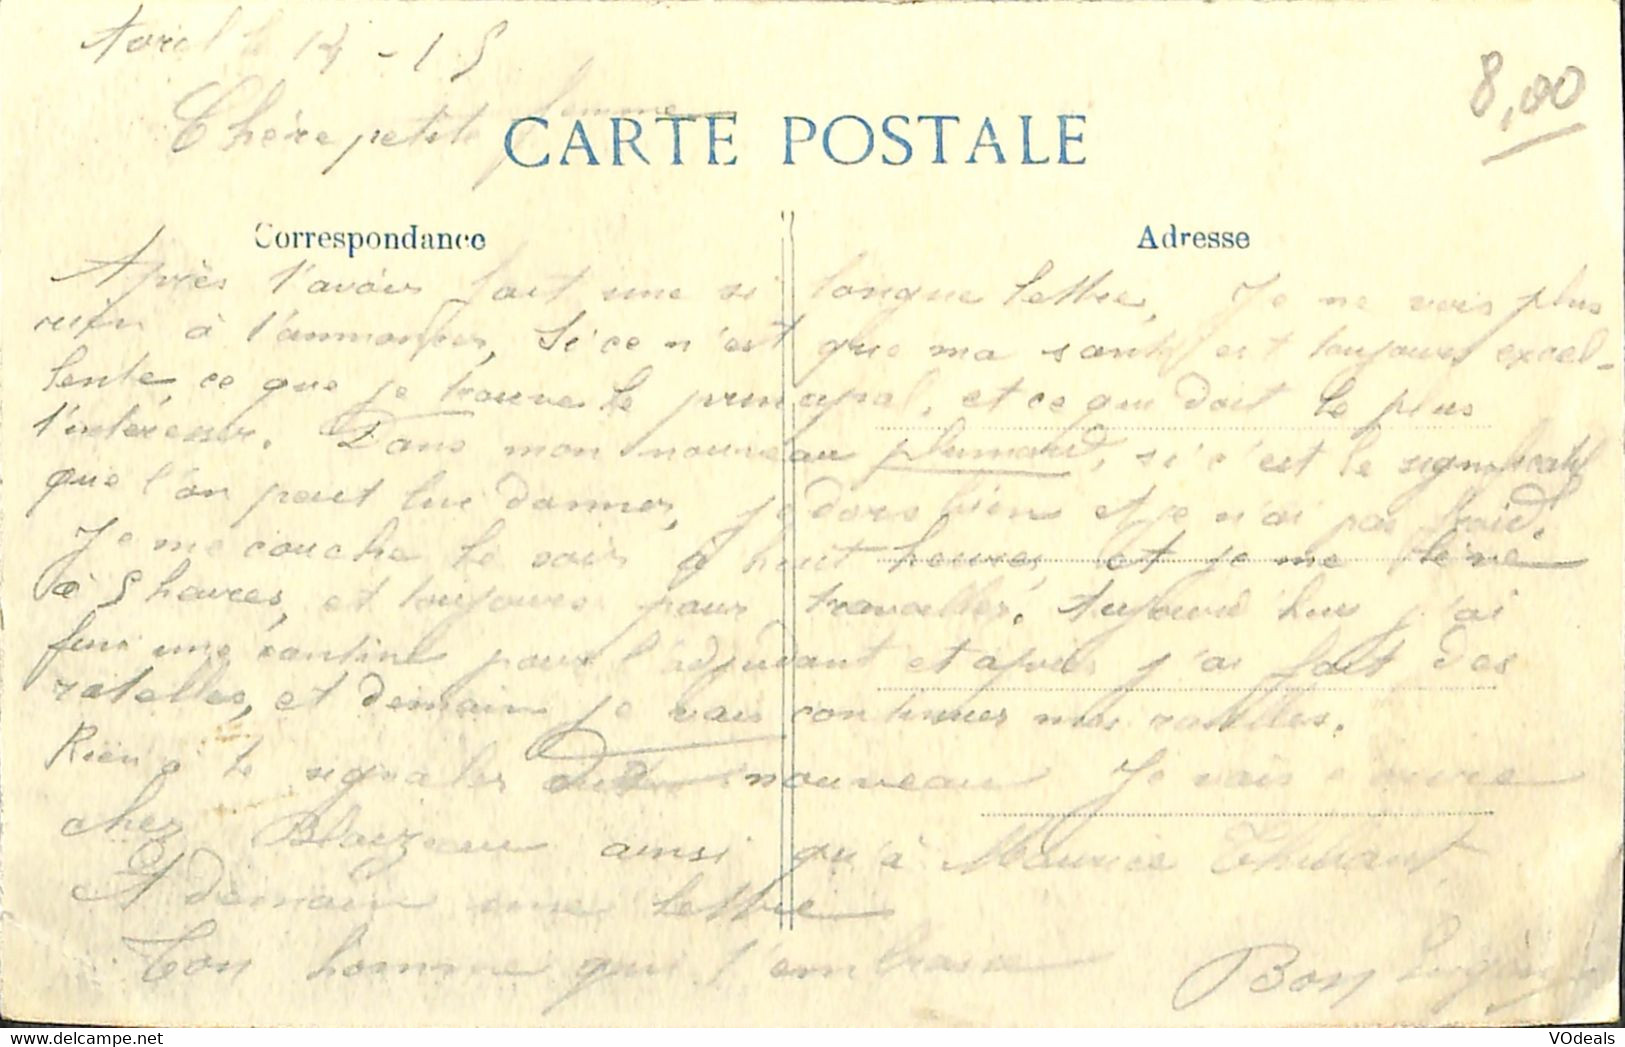 Avril le 14 - 15
8,00
Chère petite femme
CARTE POSTALE
Correspondance
Adresse
Après t'avoir fait une si longue lettre, Je ne vois plus
rien à t'annoncer, si ce n'est que ma santé est toujours excel-
lente, ce que je trouve le principal, et ce que doit le plus
t'intéresser. Dans mon nouveau plumard, si c'est le significatif
que l'on peut lui donner, je dors bien et je n'ai pas froid.
Je me couche le soir à huit heures, et je me lève
à 5 heures, et toujours pour travailler. Aujourd hui j'ai
fini une cantine pour l'adjudant et après j'ai fait des
ratelles, et demain je vais continuer mes ratelles.
Rien à te signaler de nouveau Je vais écrire
chez Blaizeau ainsi qu'à Maurice
A demain une lettre
Ton homme qui t'embrasse
Bon Eugène
VOdeals